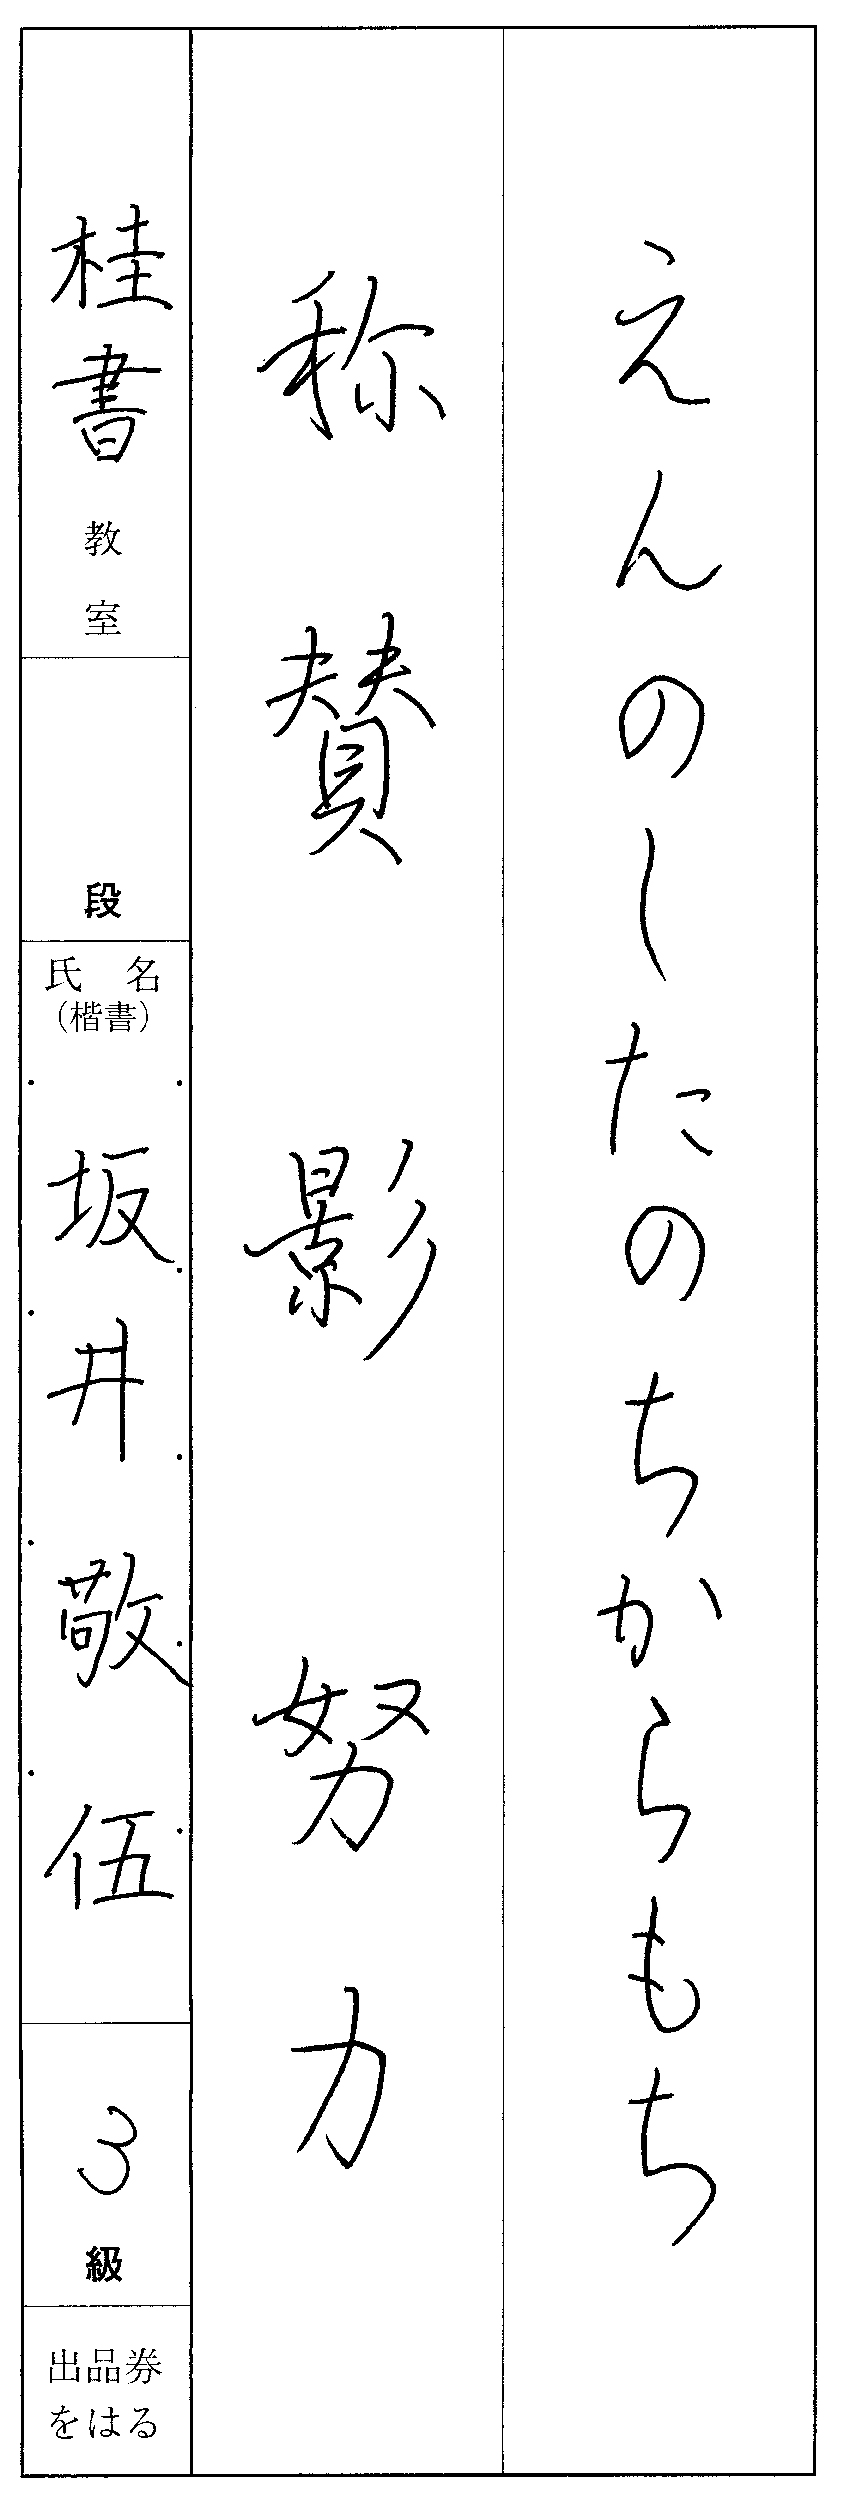 えんのしたのちからもち
称賛影努力
桂書教室
段
氏名
（楷書）
坂井敬伍
3級
出品券
をはる